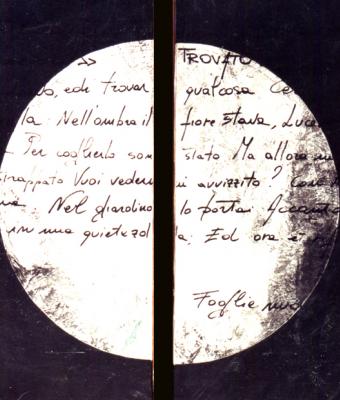 TROVATO
vo, ed i trovar qualcosa Ce
la. Nell'ombra il fiore stava, Luce
Per coglierlo son stato Ma allora mi
strappato Vuoi vederm i avvizzito?
Nel giardino lo portai Accanto
in una quieta zol la. Ed ora è
Foglie nuo